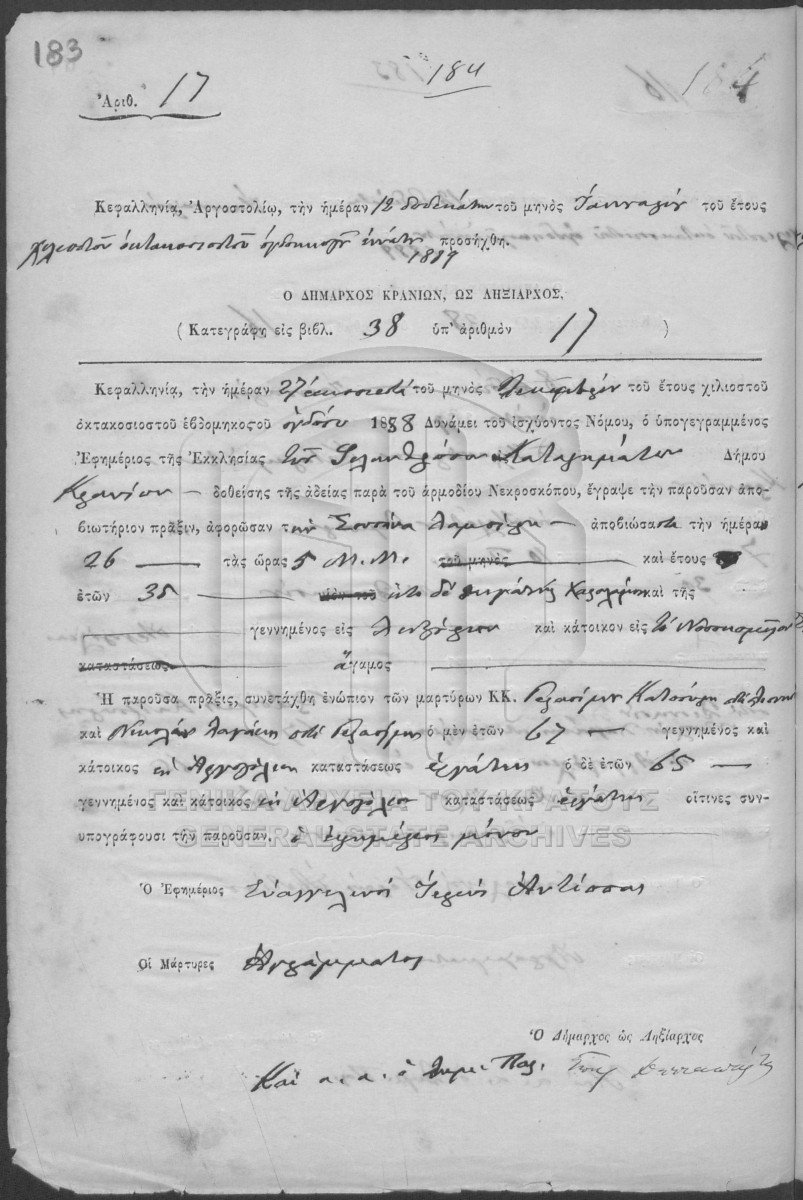 183
184
Ἀριθ. 17
Κεφαλληνίᾳ, Ἀργοστολίῳ, τὴν ἡμέραν 12 δοδεκάτην τοῦ μηνὸς Ἰαννουαρίου τοῦ ἔτους
χιλιοστοῦ ὀκτακοσιοστοῦ ὀγδοηκοστοῦ ἐννάτου 1889 προσήχθη.
Ο ΔΗΜΑΡΧΟΣ ΚΡΑΝΙΩΝ, ΩΣ ΛΗΞΙΑΡΧΟΣ,
( Κατεγράφη εἰς βιβλ. 38 ὑπ' ἀριθμὸν 17 )
Κεφαλληνίᾳ, τὴν ἡμέραν 27 τοῦ μηνὸς Δεκεμβρίου τοῦ ἔτους χιλιοστοῦ
ὀκτακοσιοστοῦ ἑβδομηκοστοῦ ὀγδόου 1888 Δυνάμει τοῦ ἰσχύοντος Νόμου, ὁ ὑπογεγραμμένος
Ἐφημέριος τῆς Ἐκκλησίας τῶν Φιλανθρόπων Καταστημάτων Δήμου
Κρανίων δοθείσης τῆς ἀδείας παρὰ τοῦ ἁρμοδίου Νεκροσκόπου, ἔγραψε τὴν παροῦσαν ἀπο-
βιωτήριον πρᾶξιν, ἀφορῶσαν τὴν ἀποβιώσασα τὴν ἡμέραν
26 τὰς ὥρας 5 Μ.Μ. τοῦ μηνὸς καὶ ἔτους
ἐτῶν 35 υἱὸν τοῦ καὶ τῆς
γεννημένος εἰς Ληξούριον καὶ κάτοικον εἰς τὸ Νοσοκομεῖον
καταστάσεως ἄγαμος
Ἡ παροῦσα πρᾶξις, συνετάχθη ἐνώπιον τῶν μαρτύρων ΚΚ. Γερασίμου
καὶ Νικολάου ὁ μὲν ἐτῶν 67 γεννημένος καὶ
κάτοικος εἰς Ἀργοστόλιον καταστάσεως ἐργάτης ὁ δὲ ἐτῶν 65
γεννημένος καὶ κάτοικος εἰς Ἀργοστόλιον καταστάσεως ἐργάτης οἵτινες συν-
υπογράφουσι τὴν παροῦσαν. ὁ ἐφημέριος μόνον
ΓΕΝΙΚΑ ΑΡΧΕΙΑ ΤΟΥ ΚΡΑΤΟΥΣ
GENERAL STATE ARCHIVES
Ὁ Ἐφημέριος Εὐαγγελινὸς Ἱερεὺς Ἀντίππας
Οἱ Μάρτυρες Ἀγράμματος
Ὁ Δήμαρχος ὡς Ληξίαρχος
Καὶ α. α. ὁ